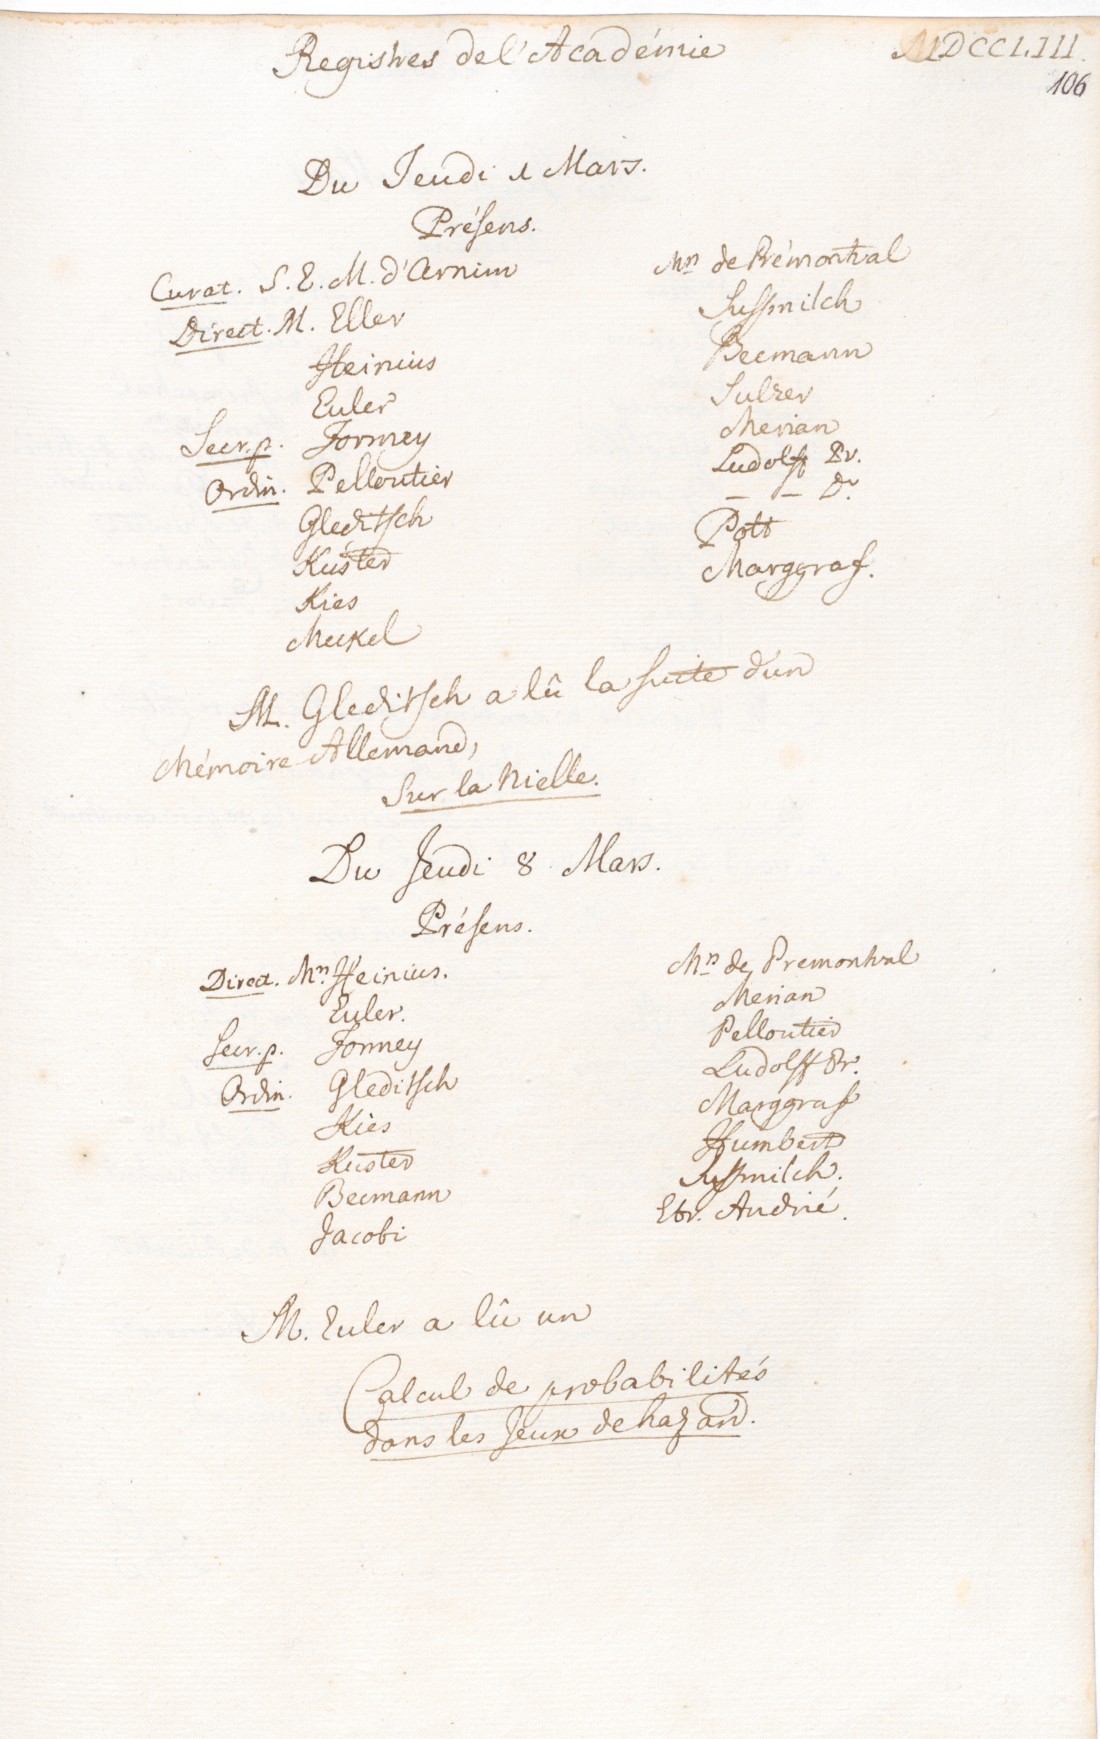 Registres de l'Académie
MDCCLIII.
106
Du Jeudi 1 Mars.
Présens.
Curat. S. E. M. d'Arnim
Direct. M. Eller
Heinius
Euler
Secr. p. Formey
Ordin. Pelloutier
Gleditsch
Küster
Kies
Meckel
Mrs de Prémontval
Sussmilch
Becmann
Sulzer
Merian
Ludolff Pr.
— — Dr.
Pott
Marggraf.
M. Gleditsch a lû la suite d'un
Mémoire Allemand,
Sur la Nielle.
Du Jeudi 8 Mars.
Présens.
Direct. Mrs Heinius.
Euler.
Secr. p. Formey
Ordin. Gleditsch
Kies
Kuster
Becmann
Jacobi
Mrs de Premontval
Merian
Pelloutier
Ludolff Pr.
Marggraf
Humbert
Sussmilch.
Etr. Andrié.
M. Euler a lû un
Calcul de probabilités
dans les Jeux de hazard.